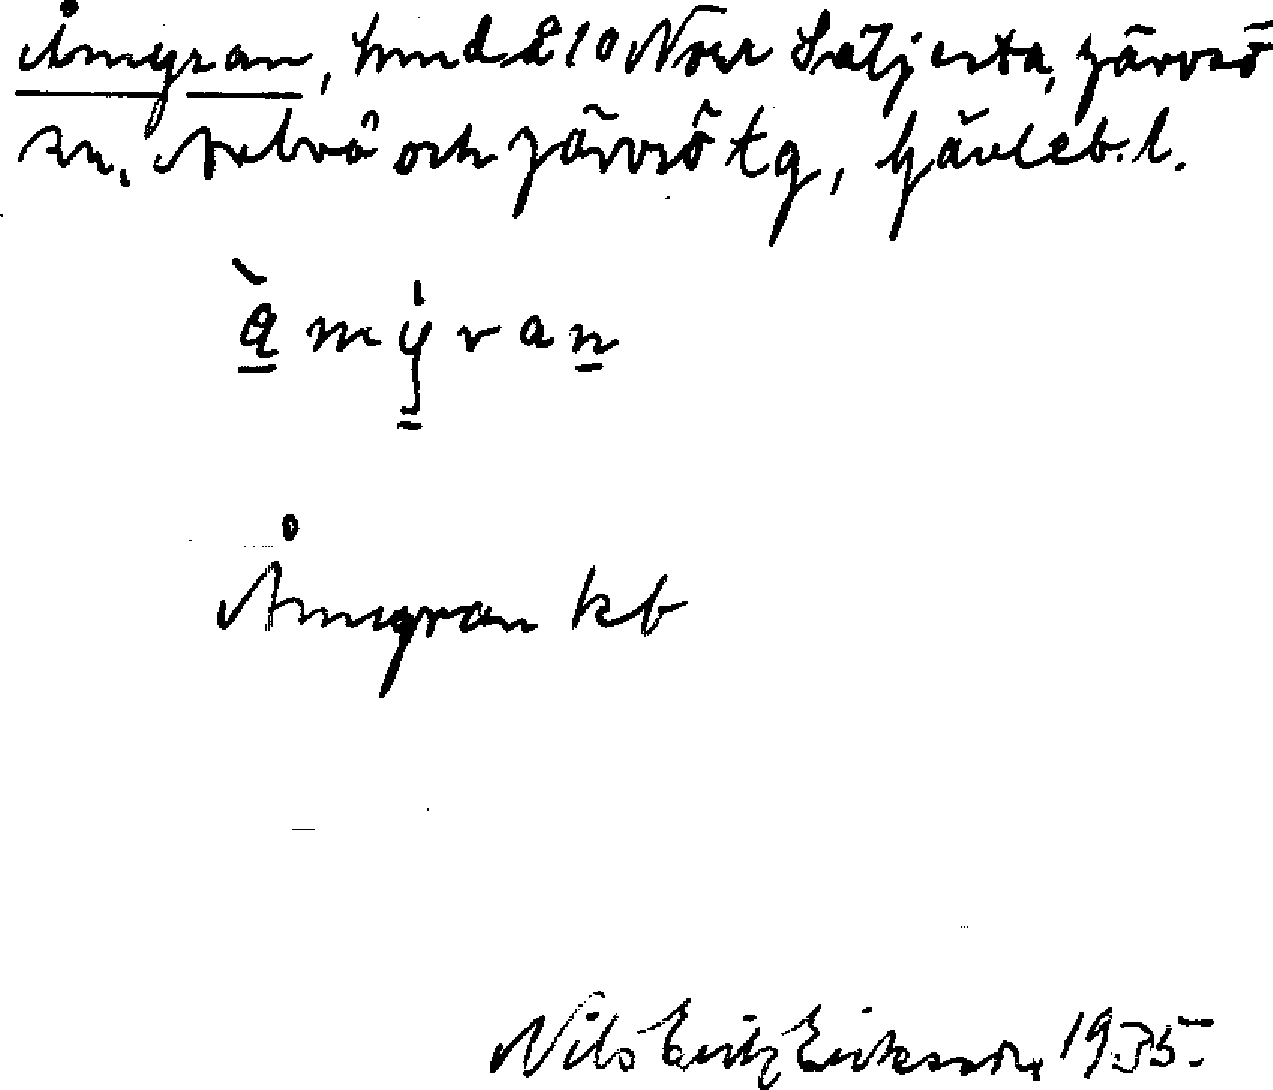 Åmyran, hmd 210 Norr Sätjesta, Järvsö
sn. Arbrå och Järvsö tg, Gävleb. l.
å̀mỳran
Åmyran kb
Nils Eritz Eriksson, 1935.